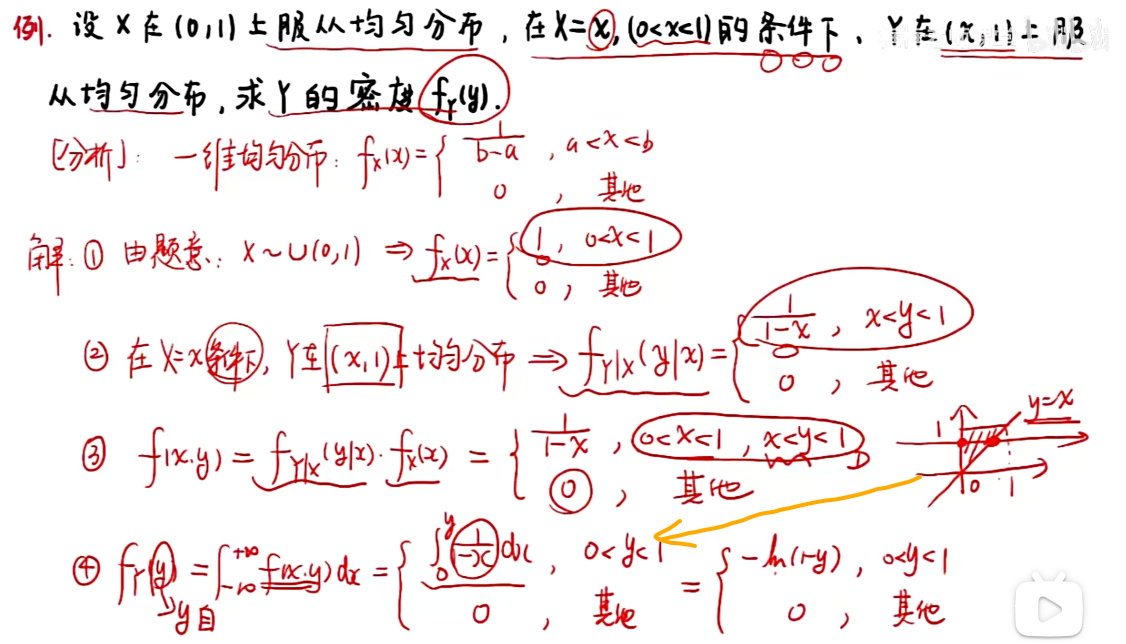 例. 设 X 在 (0,1) 上服从均匀分布, 在X=x, (0<x<1)的条件下, Y在(x,1)上服
从均匀分布, 求Y的密度 f_Y(y).
[分析]: 一维均匀分布: f_X(x)={ 1/(b-a), a<x<b
0, 其他
解: ① 由题意: X~U(0,1) ⇒ f_X(x)={ 1, 0<x<1
0, 其他
② 在X=x条件下, Y在(x,1)上均匀分布 ⇒ f_{Y|X}(y|x)={ 1/(1-x), x<y<1
0, 其他
③ f(x.y) = f_{Y|X}(y|x)·f_X(x) = { 1/(1-x), 0<x<1, x<y<1 D
0, 其他
y=x
1
0 1
④ f_Y(y) = ∫_{-∞}^{+∞} f(x.y)dx = { ∫_0^y 1/(1-x) dx, 0<y<1 = { -ln(1-y), 0<y<1
0, 其他 0, 其他
y自